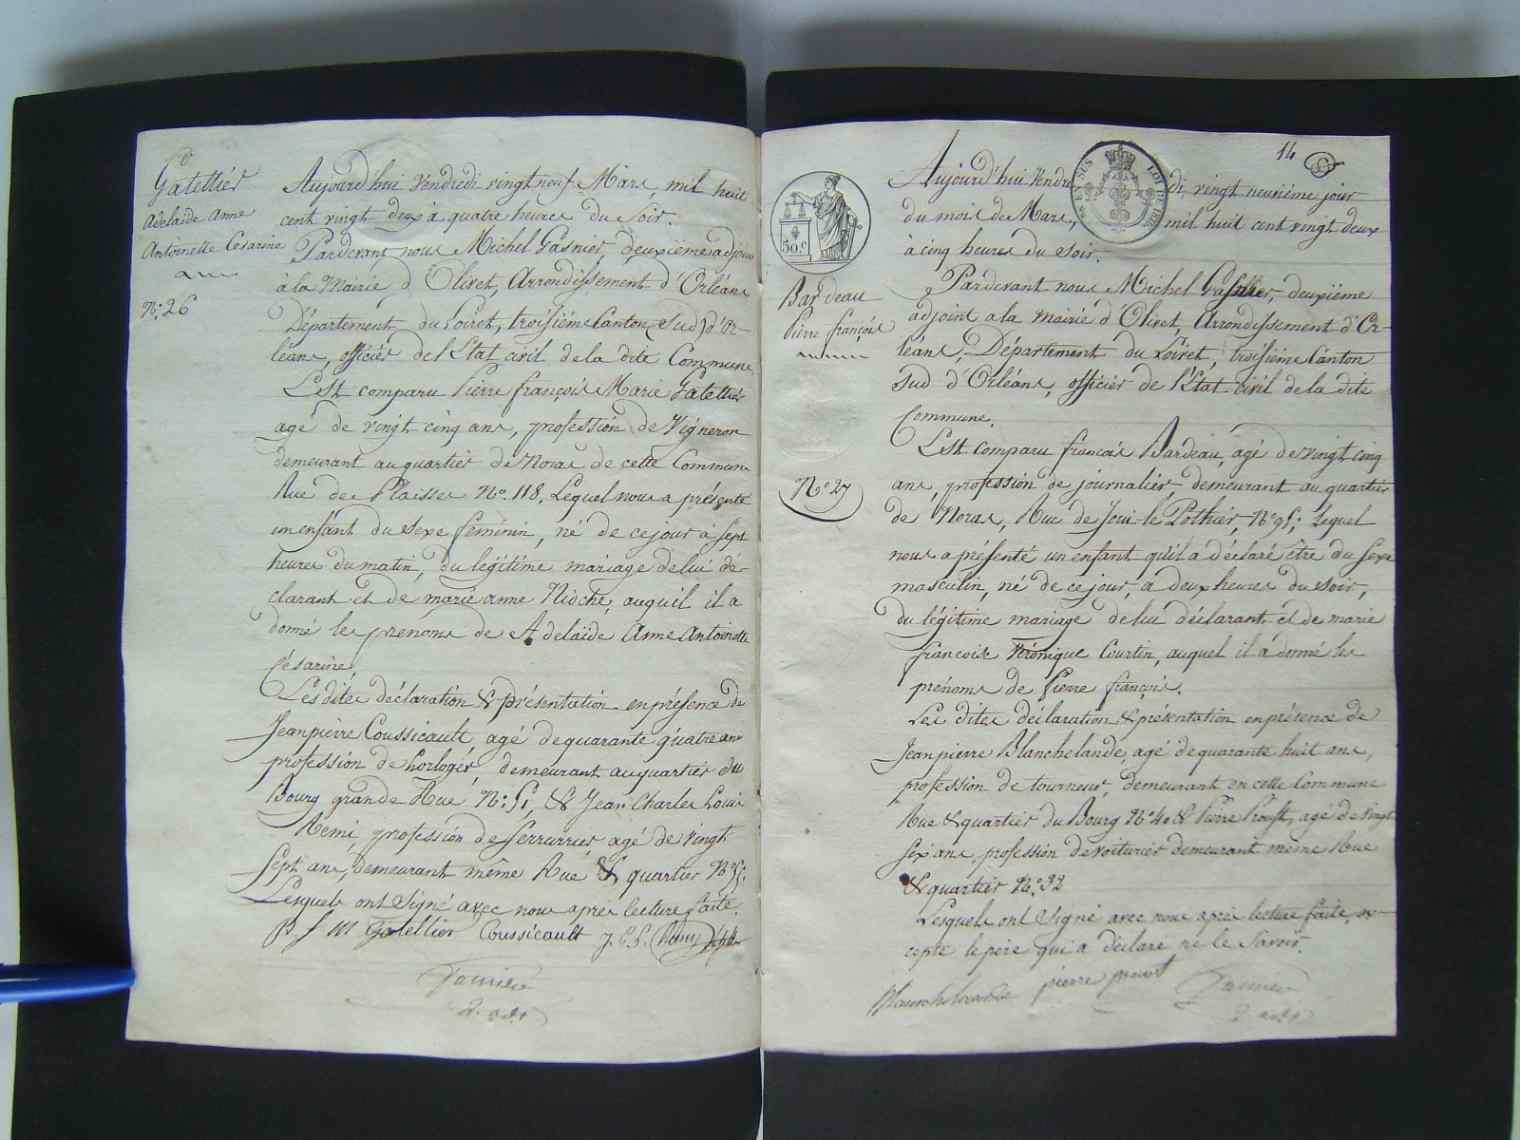 Gatellier
Adelaide Anne
Antoinette Cesarine
N°. 26
Aujourd'hui Vendredi vingt neuf Mars, mil huit
cent vingt deux à quatre heures du Soir.
Pardevant nous Michel Gasnier, deuxième adjoint
à la Mairie d'Olivet, Arrondissement d'Orléans
Département du Loiret, troisième Canton (Sud) d'Or-
léans, officier de l'Etat civil de la dite Commune
Est comparu Pierre françois Marie Gatellier
agé de vingt cinq ans, profession de Vigneron
demeurant au quartier de Noras de cette Commune
Rue de Plaisse N°. 118. Lequel nous a présenté
un enfant du sexe feminin, né de ce jour à sept
heures du matin, du légitime mariage de lui dé-
clarant et de marie anne Nioche, auquil il a
donné les prenoms de Adelaïde Anne Antoinette
Césarine.
Les dites déclaration & présentation en présence de
Jean pierre Coussicault agé de quarante quatre ans
profession de horloger, demeurant au quartier du
Bourg grande Rue N°. 51, & Jean Charles Louis
Remi, profession de Serrurrier agé de vingt
Sept ans, demeurant même Rue & quartier
Lesquels ont signé avec nous après lecture faite.
P f M Gatellier Coussicault J. C. L. Remi
Gasnier
2e. adjt
14
SES SUS LOI DE 1816
50.c
Bardeau
Pierre françois
N° 27
Aujourd'hui Vendredi, vingt neuvième jour
du mois de Mars, mil huit cent vingt deux
à cinq heures du Soir.
Pardevant nous Michel Gasnier, deuxième
adjoint a la mairie d'Olivet, Arrondissement d'Or-
léans, Département du Loiret, troisième Canton
Sud d'Orléans, officier de l'Etat civil de la dite
Commune.
Est comparu francois Bardeau, agé de vingt cinq
ans, profession de journalier demeurant au quartier
de Noras, Rue de Joui-le-Pothier, N° 95; Lequel
nous a présenté un enfant quil a déclaré être du sexe
masculin, né de ce jour, à deux heures du soir,
du légitime mariage de lui déclarant et de marie
francoise Véronique Courtin, auquel il à donné les
prénoms de Pierre françois.
Les dites déclaration & présentation en présence de
Jean pierre Blanchelande, agé de quarante huit ans,
profession de tourneur, demeurant en cette Commune
Rue & quartier du Bourg N° 40 & Pierre Proust, agé de vingt
six ans, profession de voiturier demeurant même Rue
& quartier N°. 32
Lesquels ont signé avec nous après lecture faite, ex-
cepté le père qui a déclaré ne le savoir.
Blanchelande pierre prout Gasnier
2e. adjt